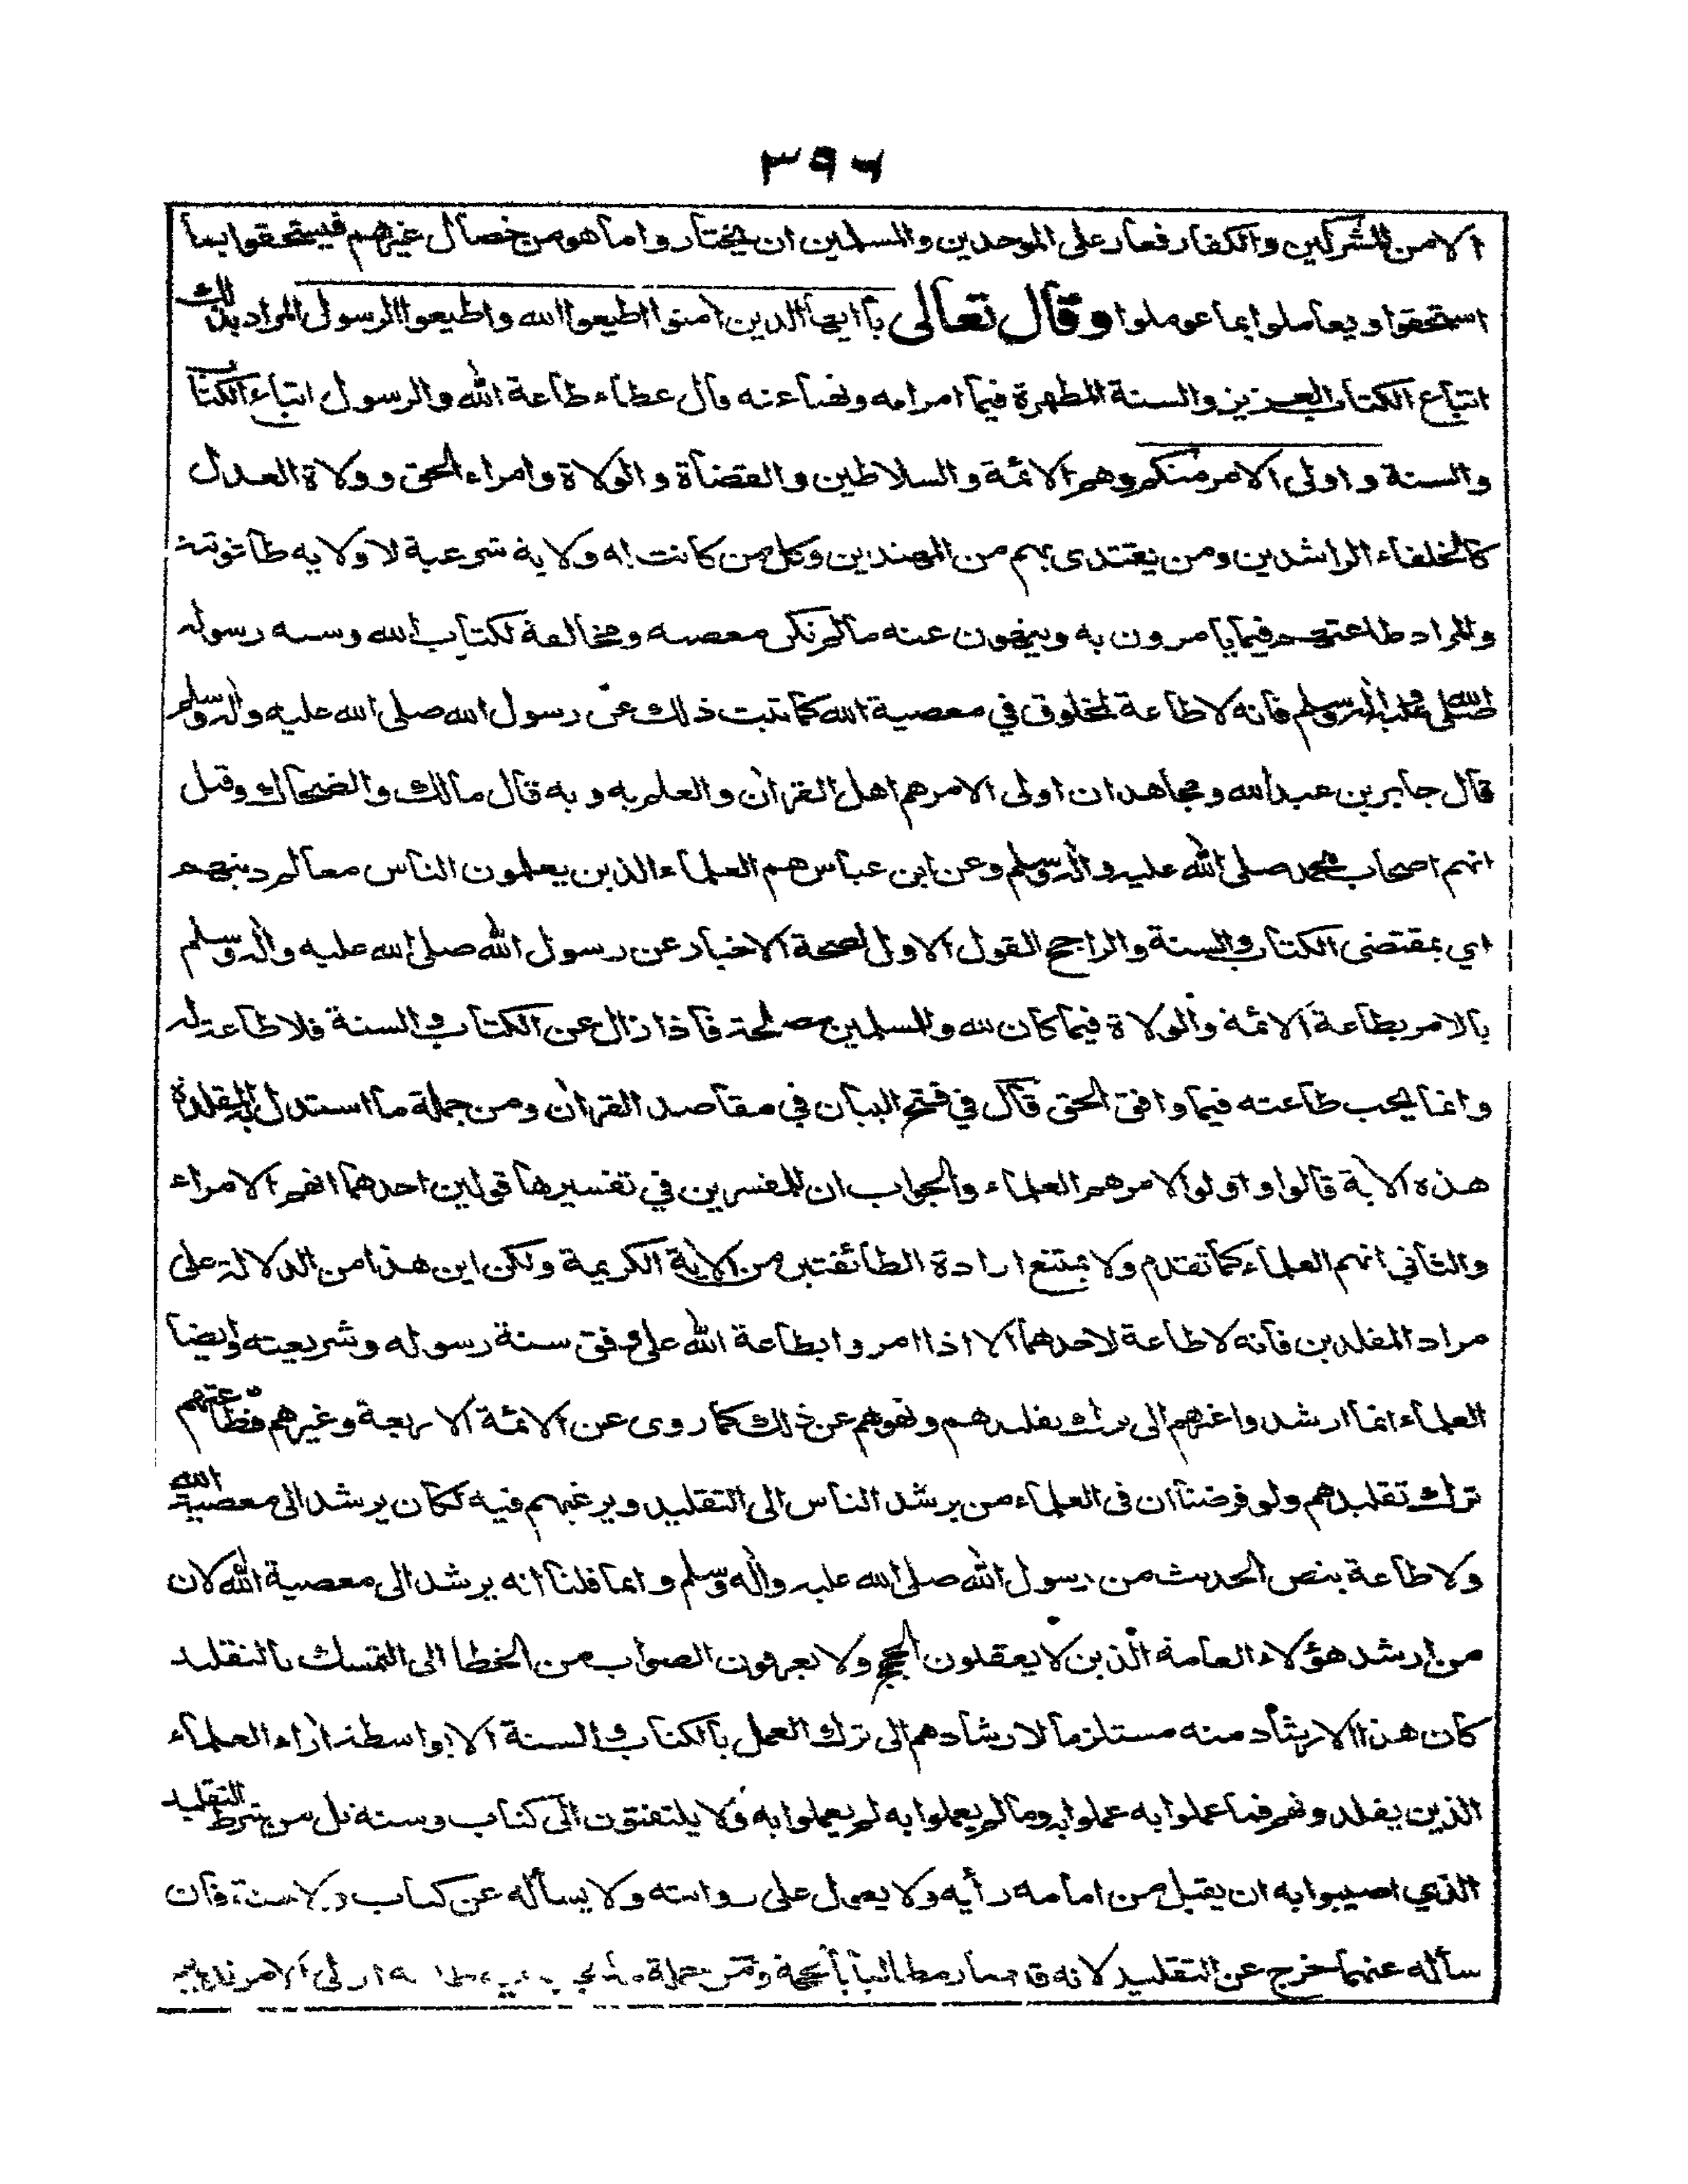 ٣٩٦
الا من المشركين والكفار فعار على الموحدين والمسلمين ان يختاروا ما هو من خصال غيرهم فيستحقوا بما
استحقوا ويعاملوا بما عوملوا وقال تعالى يا ايها الذين امنوا اطيعوا الله واطيعوا الرسول المراد بذلك
اتباع الكتاب العزيز والسنة المطهرة فيما امرا به ونهيا عنه قال عطاء طاعة الله والرسول اتباع الكتاب
والسنة واولى الامر منكم وهم الائمة والسلاطين والقضاة والولاة وامراء الحق وولاة العدل
كالخلفاء الراشدين ومن يقتدى بهم من المهتدين وكل من كانت له ولاية شرعية لا ولاية طاغوتية
والمراد طاعتهم فيما يأمرون به وينهون عنه ما لم تكن معصية ومخالفة لكتاب الله وسنة رسوله
صلى الله عليه واله وسلم فانه لا طاعة لمخلوق في معصية الله كما ثبت ذلك عن رسول الله صلى الله عليه واله وسلم
قال جابر بن عبد الله ومجاهد ان اولى الامر هم اهل القران والعلم به وبه قال مالك والضحاك وقيل
انهم اصحاب محمد صلى الله عليه واله وسلم وعن ابن عباس هم العلماء الذين يعلمون الناس معالم دينهم
اي بمقتضى الكتاب والسنة والراجح القول الاول لصحة الاخبار عن رسول الله صلى الله عليه واله وسلم
بالامر بطاعة الائمة والولاة فيما كان لله وللمسلمين مصلحة فاذا زال عن الكتاب والسنة فلا طاعة له
وانما يجب طاعته فيما وافق الحق قال في فتح البيان في مقاصد القران ومن جملة ما استدل به المقلدة
هذه الاية قالوا واولوا الامر هم العلماء والجواب ان للمفسرين في تفسيرها قولين احدهما انهم الامراء
والثاني انهم العلماء كما تقدم ولا يمتنع ارادة الطائفتين من الاية الكريمة ولكن اين هذا من الدلالة على
مراد المقلدين فانه لا طاعة لاحدهما الا اذا امروا بطاعة الله على وفق سنة رسوله وشريعته وايضا
العلماء انما ارشدوا غيرهم الى ترك تقليدهم ونهوهم عن ذلك كما روى عن الائمة الاربعة وغيرهم فطاعتهم
ترك تقليدهم ولو فرضنا ان فى العلماء من يرشد الناس الى التقليد ويرغبهم فيه لكان يرشد الى معصية الله
ولا طاعة بنص الحديث من رسول الله صلى الله عليه واله وسلم وانما قلنا انه يرشد الى معصية الله لان
من ارشد هؤلاء العامة الذين لا يعقلون الحجج ولا يعرفون الصواب من الخطا الى التمسك بالتقليد
كان هذا الارشاد منه مستلزما لارشادهم الى ترك العمل بالكتاب والسنة الا بواسطة اراء العلماء
الذين يقلدونهم فما عملوا به عملوا به وما لم يعملوا به لم يعملوا به ولا يلتفتون الى كتاب وسنة بل من شرط التقليد
الذي اصيبوا به ان يقبل من امامه رأيه ولا يعول على روايته ولا يسأله عن كتاب ولا سنة فان
سأله عنهما خرج عن التقليد لانه قد صار مطالبا بالحجة ومن جملة ما تجب فيه طاعة اولى الامر تدبير